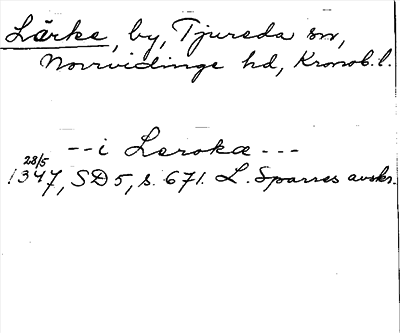 Lärke, by, Tjureda sn,
Norrvidinge hd, Kronob. l.
--i Leroka ---
28/5
1347, SD 5, s. 671. L. Sparres avskr.